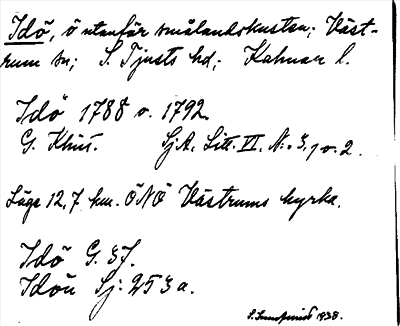 Idö, ö utanför smålandskusten; Väst-
rum sn; S. Tjusts hd; Kalmar l.
Idö 1788 o. 1792.
G. Klint. SjA. Litt. VI. N:o 3, 1 o. 2.
Läge 12,7 km. ÖNÖ Västrums kyrka.
Idö G. 37.
Idön Sj: 253 a.
1938.